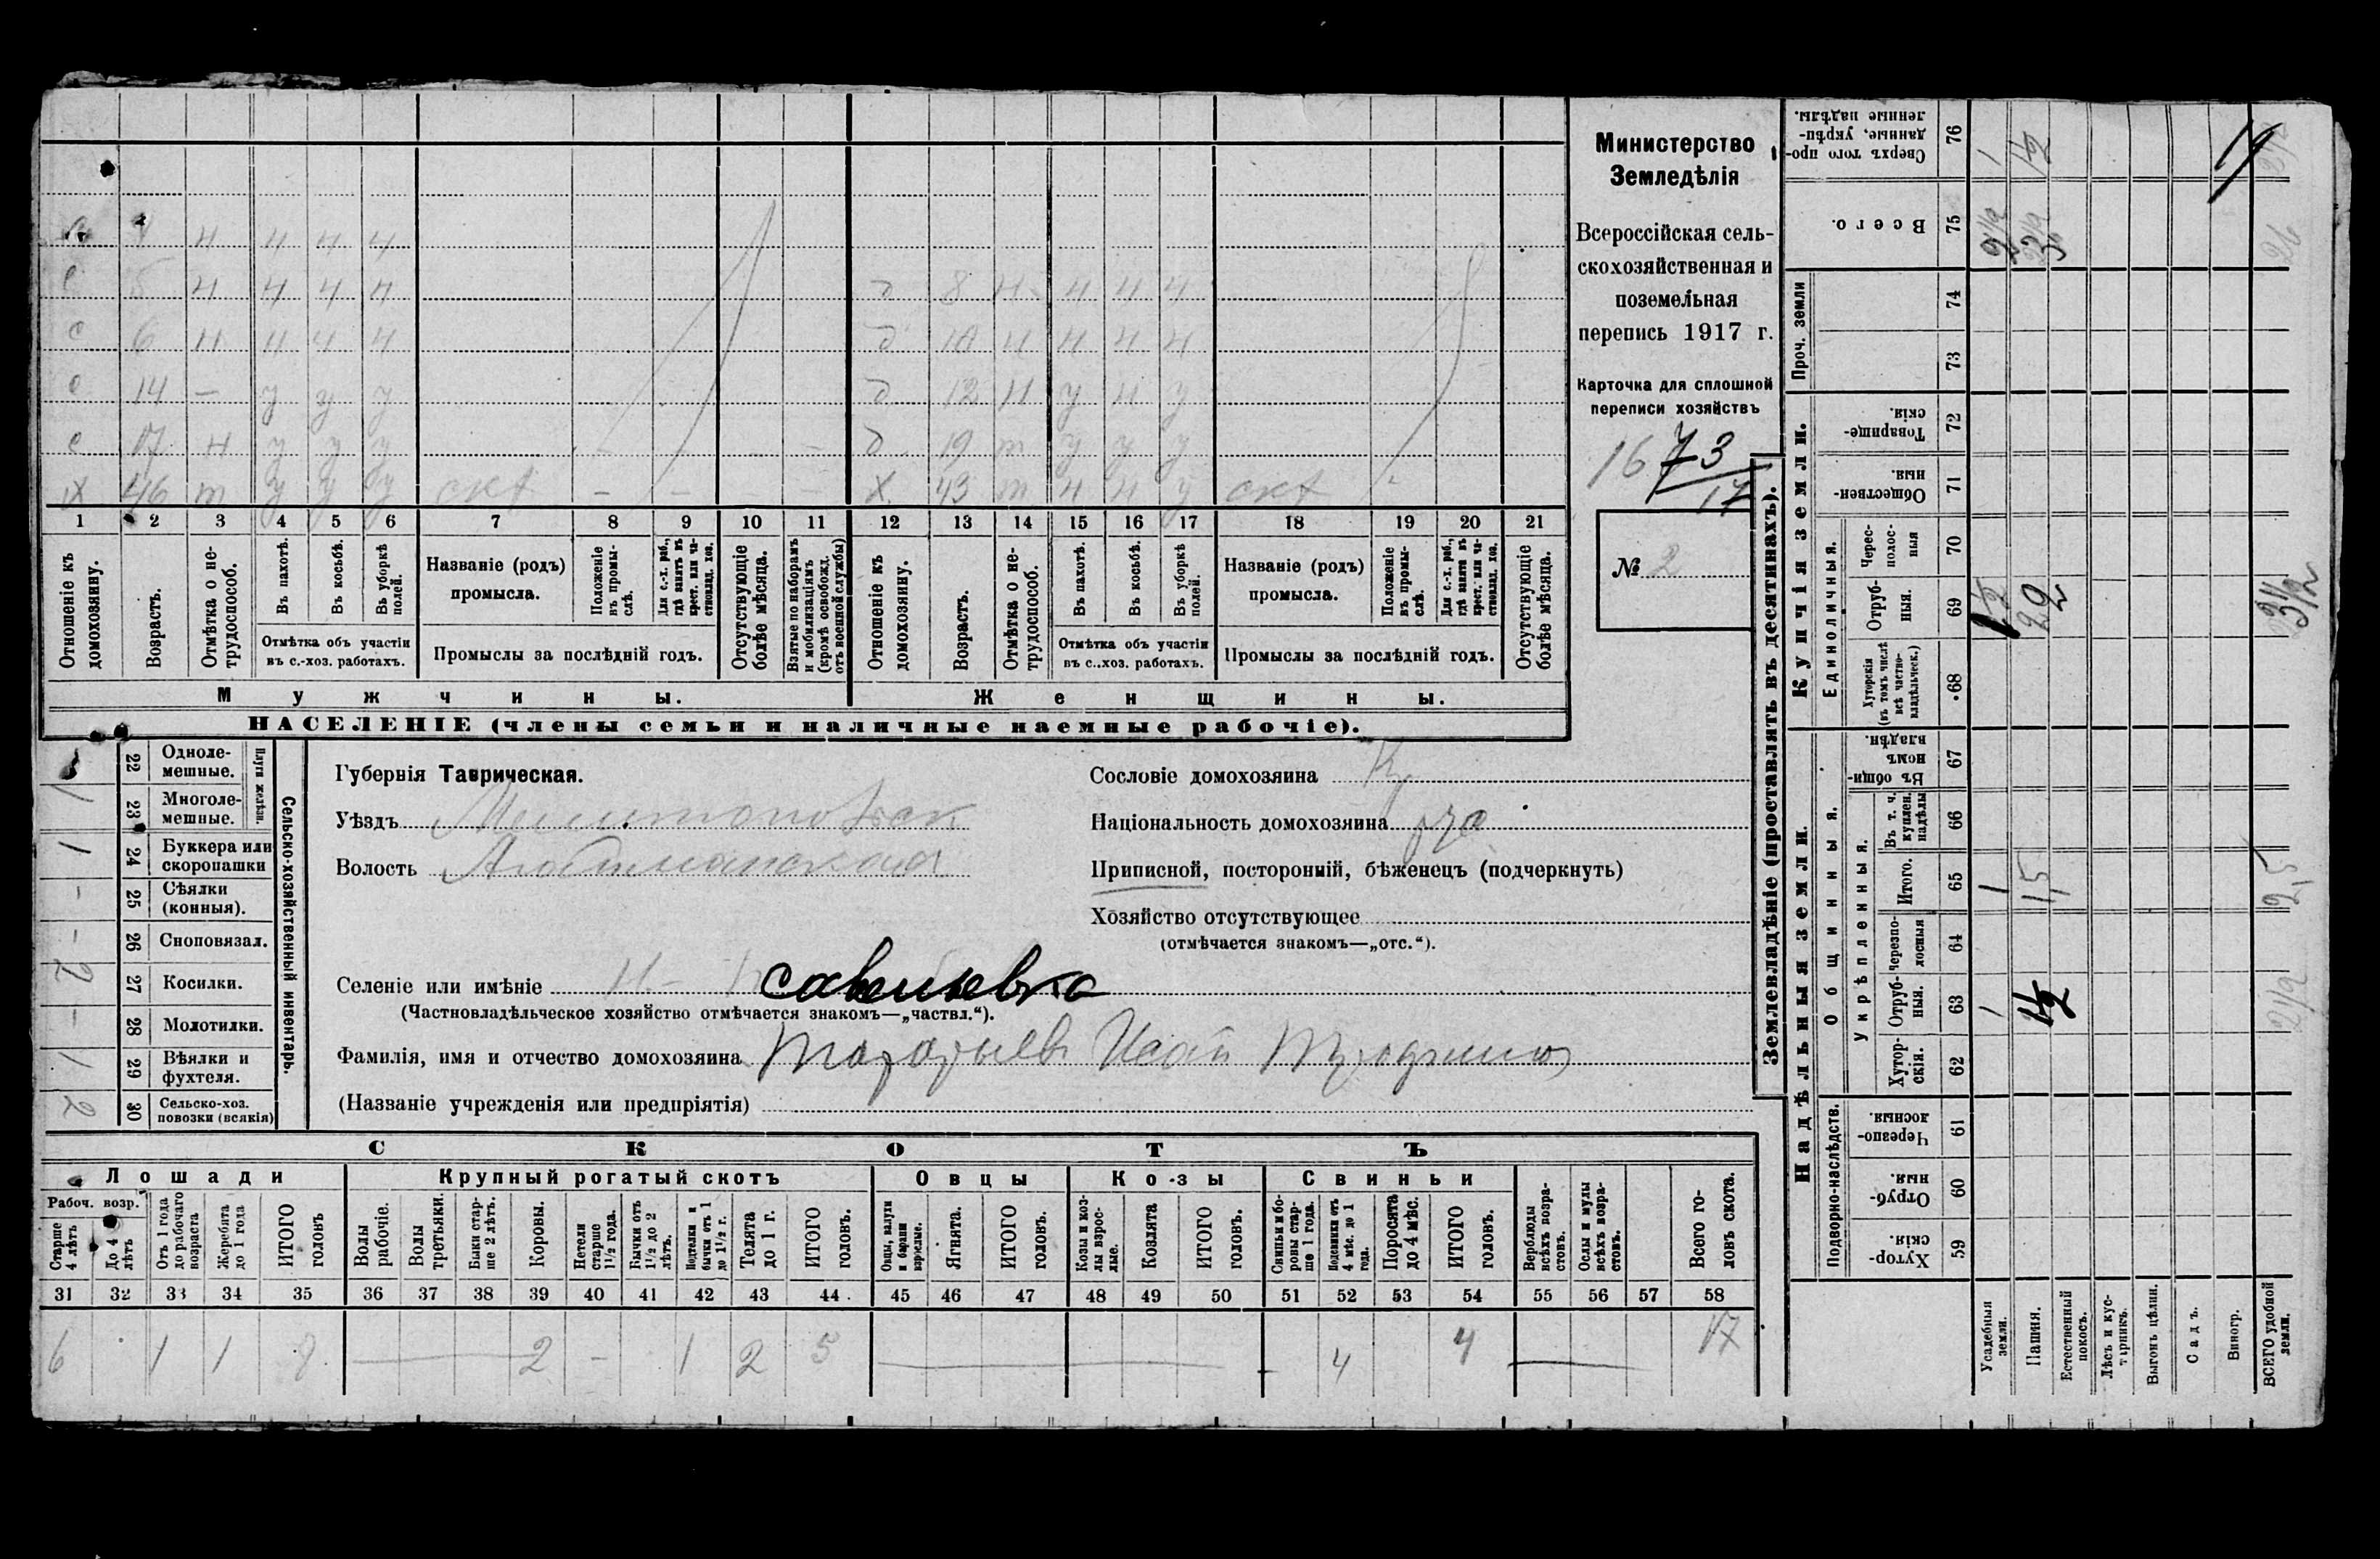 с 4 н н н н
с 5 н н н н д 8 н н н н
с 6 н н н н д 10 н н н н
с 14 – у у у д 12 н у н у
с 17 н у у у – – – д 19 т у у у
х 46 т у у у скх – – – – х 43 т н н у скх –
1 2 3 4 5 6 7 8 9 10 11 12 13 14 15 16 17 18 19 20 21
Отношеніе къ домохозяину.
Возрастъ.
Отмѣтка о не-трудоспособ.
Въ пахотѣ.
Въ косьбѣ.
Въ уборкѣ полей.
Отмѣтка объ участіи въ с.-хоз. работахъ.
Названіе (родъ) промысла.
Положеніе въ промы-слѣ.
Для с.-х. раб., гдѣ занятъ въ крест. или ча-стновлад. хоз.
Промыслы за послѣдній годъ.
Отсутствующіе болѣе мѣсяца.
Взятые по наборамъ и мобилизаціямъ (кромѣ освобожд. отъ военной службы)
Отношеніе къ домохозяину.
Возрастъ.
Отмѣтка о не-трудоспособ.
Въ пахотѣ.
Въ косьбѣ.
Въ уборкѣ полей.
Отмѣтка объ участіи въ с..хоз. работахъ.
Названіе (родъ) промысла.
Положеніе въ промы-слѣ.
Для с.-х. раб., гдѣ занята въ крест. или ча-стновлад. хоз.
Промыслы за послѣдній годъ.
Отсутствующіе болѣе мѣсяца.
Мужчины. Женщины.
НАСЕЛЕНІЕ (члены семьи и наличные наемные рабочіе).
Министерство
Земледѣлія
Всероссійская сель-
скохозяйственная и
поземельная
перепись 1917 г.
Карточка для сплошной
переписи хозяйствъ
16 73
17
№ 2
22 Одноле-мешные.
1 23 Многоле-мешные.
Плуги желѣзн.
1 24 Буккера или скоропашки
– 25 Сѣялки (конныя).
– 26 Сноповязал.
2 27 Косилки.
– 28 Молотилки.
1 29 Вѣялки и фухтеля.
2 30 Сельско-хоз. повозки (всякія)
Сельско-хозяйственный инвентарь.
Губернія Таврическая.
Уѣздъ Мелитопольск
Волость
Сословіе домохозяина Кр
Національность домохозяина
Приписной, посторонній, бѣженецъ (подчеркнуть)
Хозяйство отсутствующее
(отмѣчается знакомъ—„отс.“).
Селеніе или имѣніе Н. – савельевка
(Частновладѣльческое хозяйство отмѣчается знакомъ—„частвл.“).
Фамилія, имя и отчество домохозяина
(Названіе учрежденія или предпріятія)
СКОТЪ
Лошади Крупный рогатый скотъ Овцы Козы Свиньи
Рабоч. возр.
Старше 4 лѣтъ
До 4 лѣтъ
Отъ 1 года до рабочаго возраста
Жеребята до 1 года
ИТОГО головъ
Волы рабочіе.
Волы третьяки.
Быки стар-ше 2 лѣтъ.
Коровы.
Нетели старше 1½ года.
Бычки отъ 1½ до 2 лѣтъ.
Подтелки и бычки отъ 1 до 1½ г.
Телята до 1 г.
ИТОГО головъ.
Овцы, валухи и бараны взрослые.
Ягнята.
ИТОГО головъ.
Козы и коз-лы взрос-лые.
Козлята
ИТОГО головъ.
Свиньи и бо-ровы стар-ше 1 года.
Подсвинки отъ 4 мѣс. до 1 года.
Поросята до 4 мѣс.
ИТОГО головъ.
Верблюды всѣхъ возра-стовъ.
Ослы и мулы всѣхъ возра-стовъ.
Всего го-ловъ скота.
31 32 33 34 35 36 37 38 39 40 41 42 43 44 45 46 47 48 49 50 51 52 53 54 55 56 57 58
6 1 1 8 2 – 1 2 5 4 4 17
Землевладѣніе (проставлять въ десятинахъ).
Купчія земли.
Надѣльныя земли.
Сверхъ того про-данные, укрѣп-ленные надѣлы. 76 1 1½
Всего. 75 2½ 23½ 26
Проч. земли 74 73
Товарище-скія. 72
Обществен-ныя. 71
Единоличныя.
Черес-полос-ныя 70
Отруб-ныя. 69 1½ 22 23½
Хуторскія (въ томъ числѣ всѣ частно-владѣльческ.) 68
Общинныя.
Въ общи-номъ владѣн. 67
Укрѣпленныя.
Въ т. ч. куплен. надѣлы 66
Итого. 65 1 1,5 2,5
Черезпо-лосныя 64
Отруб-ныя. 63 1 1½ 2½
Хутор-скія. 62
Подворно-наслѣдств.
Черезпо-лосныя. 61
Отруб-ныя. 60
Хутор-скія. 59
Усадебныя земли.
Пашня.
Естественный покосъ.
Лѣсъ и кус-тарникъ.
Выгонъ цѣлин.
Садъ.
Виногр.
ВСЕГО удобной земли.